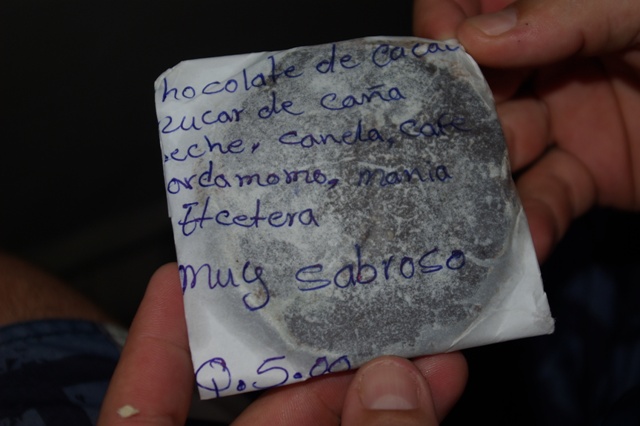 hocolate de cacao
zucar de caña
eche, canela, cafe
ardamomo, mania
Etcetera
muy sabroso
Q.5.00